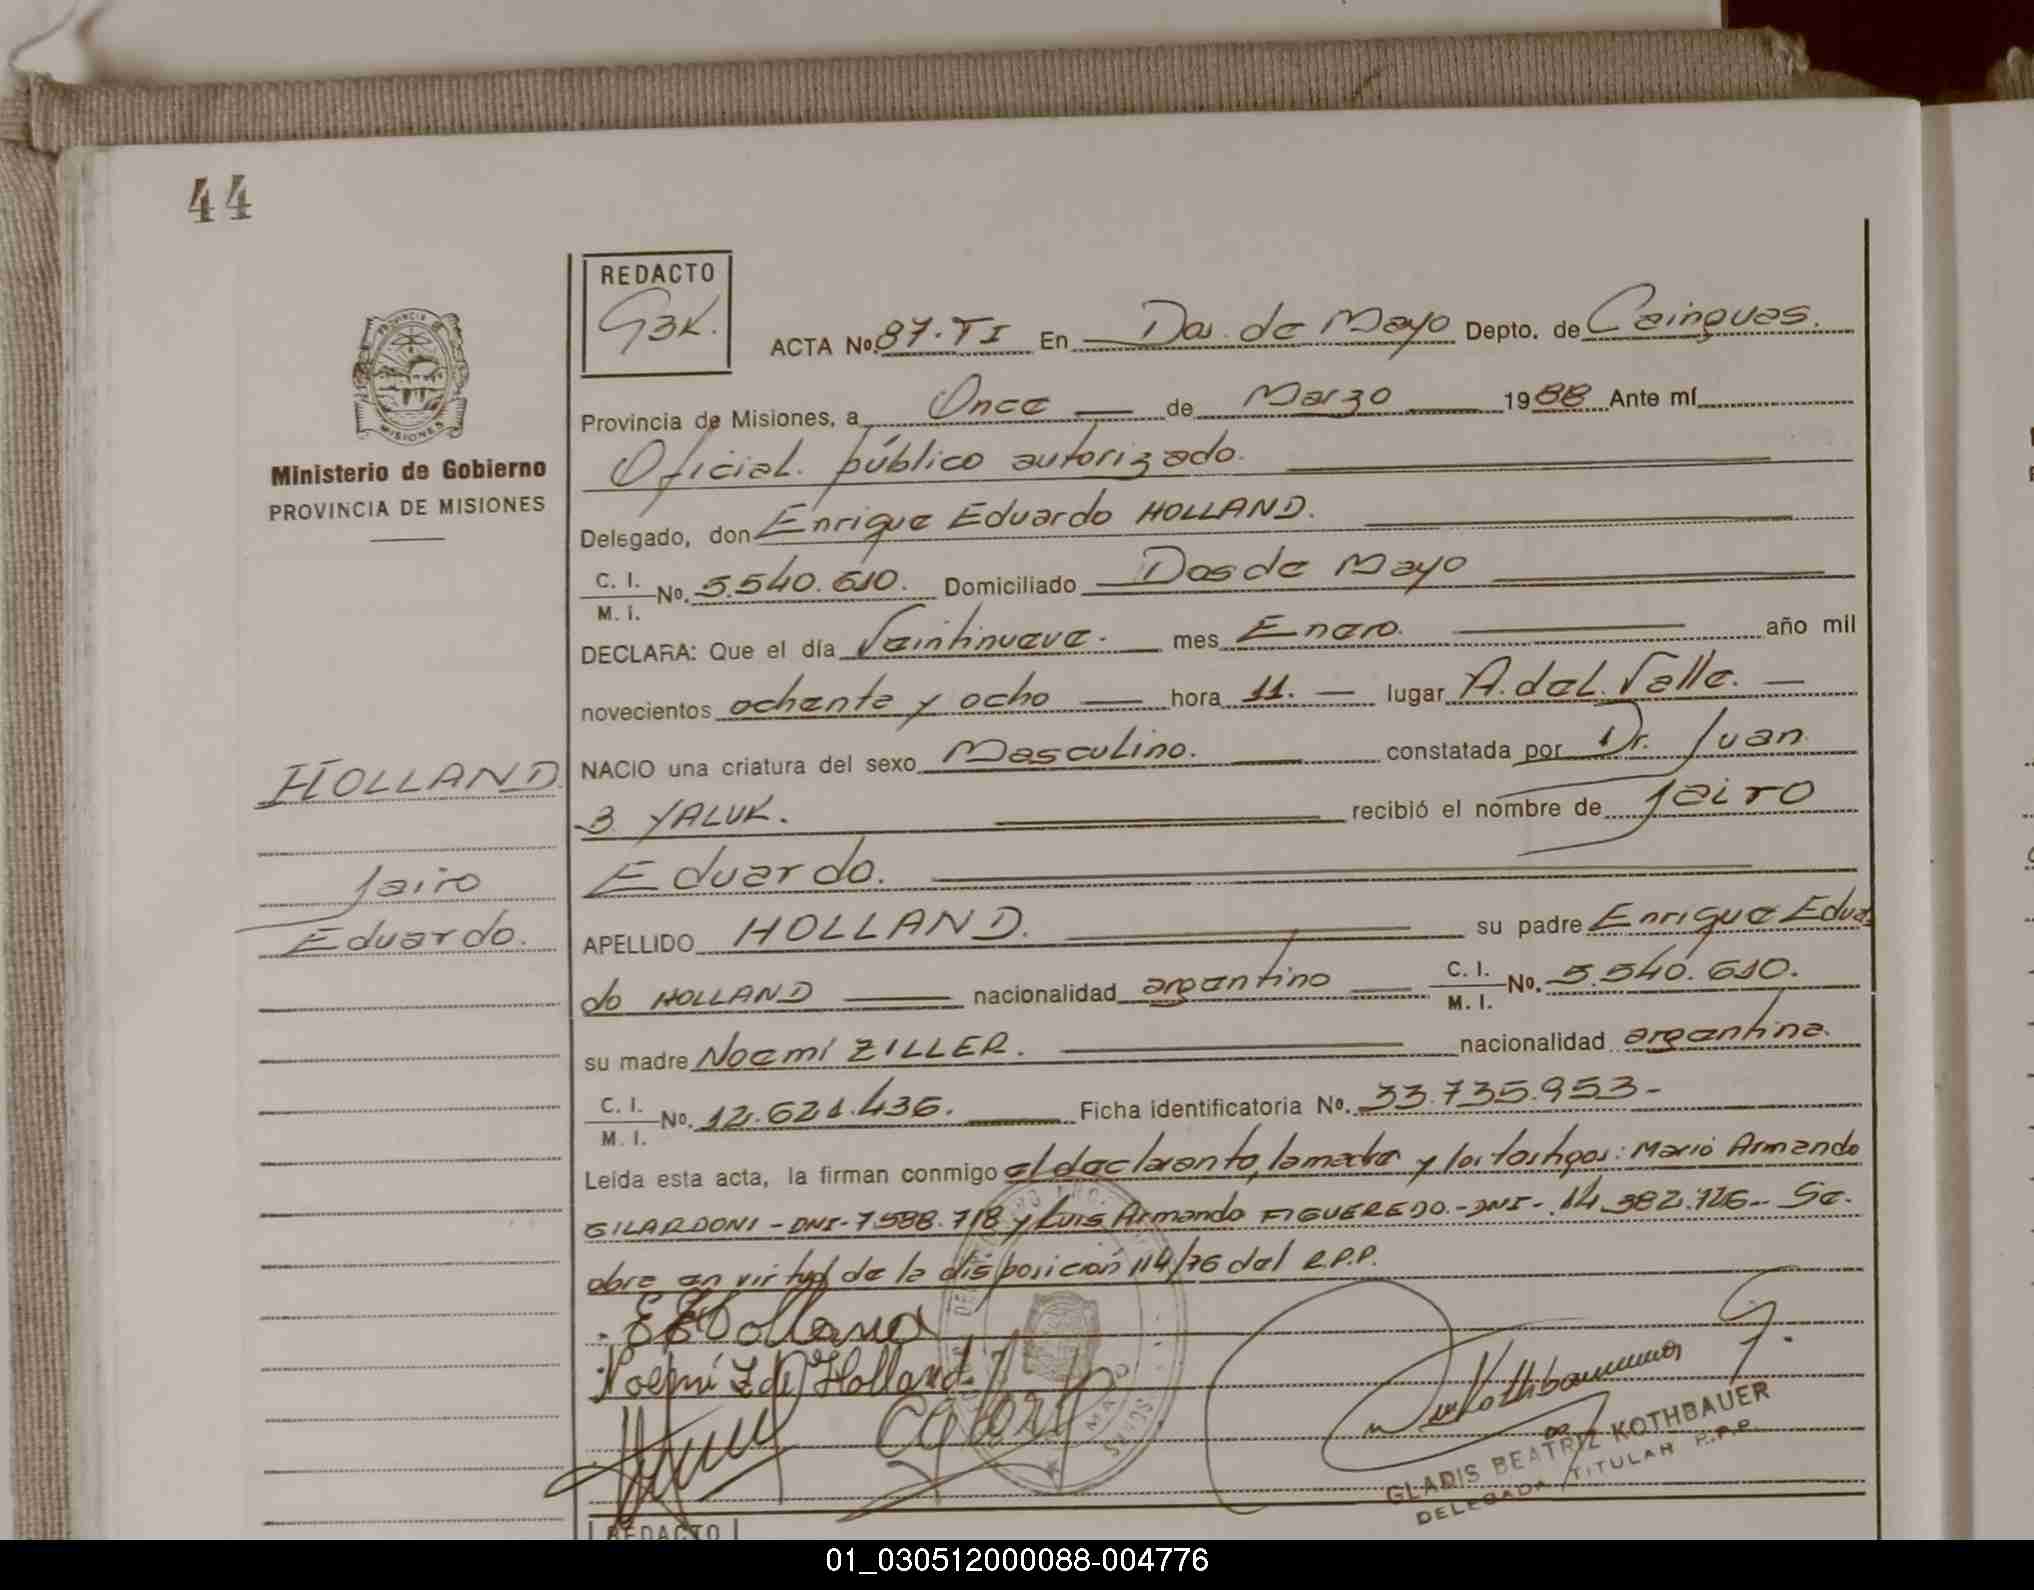 44
REDACTO
GBK.
ACTA Nº. 87. TI En Dos de Mayo Depto. de Cainguas.
Provincia de Misiones, a Once de Marzo 1988 Ante mí
Oficial público autorizado.
Ministerio de Gobierno
PROVINCIA DE MISIONES
Delegado, don Enrique Eduardo HOLLAND.
C. I. / M. I. Nº. 5.540.610. Domiciliado Dos de Mayo
DECLARA: Que el día Veintinueve. mes Enero. año mil
novecientos ochenta y ocho hora 11. lugar A. del Valle.
NACIO una criatura del sexo Masculino. constatada por Dr. Juan
HOLLAND
B YALUK. recibió el nombre de Jairo
Jairo
Eduardo.
Eduardo.
APELLIDO HOLLAND. su padre Enrique Eduar
do HOLLAND nacionalidad argentino C. I. / M. I. Nº. 5.540.610.
su madre Noemí ZILLER. nacionalidad argentina.
C. I. / M. I. Nº. 12.621.436. Ficha identificatoria Nº. 33.735.953-
Leída esta acta, la firman conmigo el declarante, la madre y los testigos: Mario Armando
GILARDONI - DNI - 7.588.718 y Luis Armando FIGUEREDO. - DNI - 14.382.126 - Se
obre en virtud de la disposición 114/76 del R.P.P.
E E Holland
Noemí Z de Holland
GLADIS BEATRIZ KOTHBAUER
DELEGADA TITULAR R.P.P.
REDACTO
01_030512000088-004776